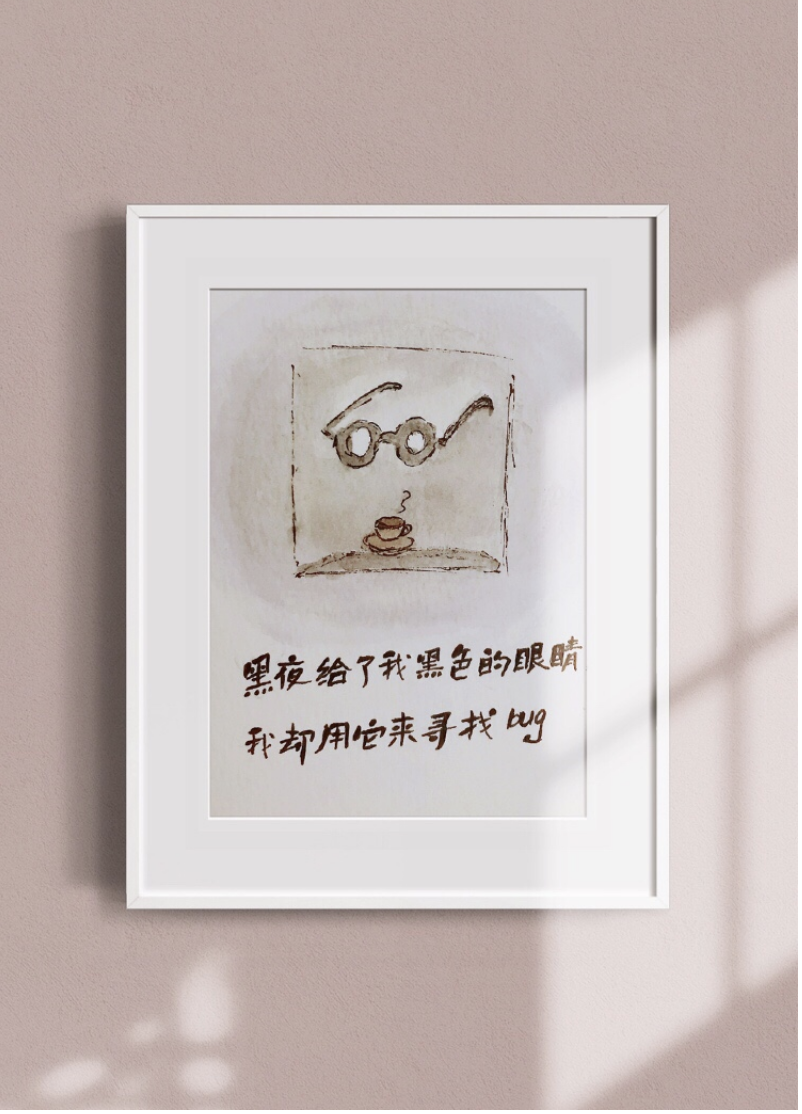 黑夜给了我黑色的眼睛
我却用它来寻找bug